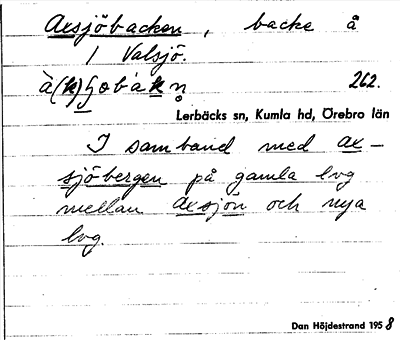 Axsjöbacken, backe å
1 Valsjö.
262.
Lerbäcks sn, Kumla hd, Örebro län
I samband med ax-
sjöbergen på gamla lvg
mellan axsjön och nya
lvg.
Dan Höjdestrand 1958